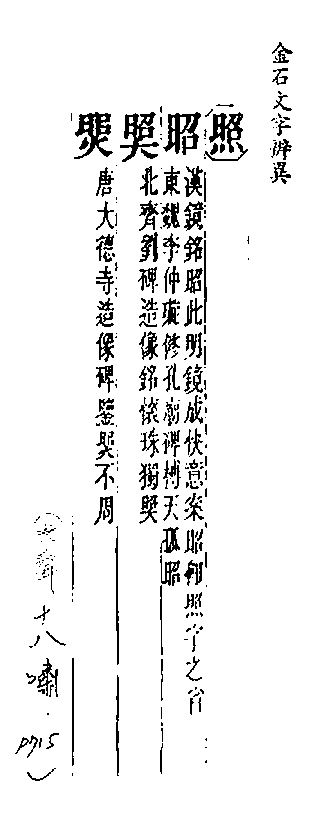 金石文字辨異
照
昭
漢鏡銘昭此明鏡成快意案昭卽照字之省
東魏李仲璇修孔廟碑搏天孤昭
北齊劉碑造像銘懷珠獨
唐大德寺造像碑鑒不周
十八嘯.
P715